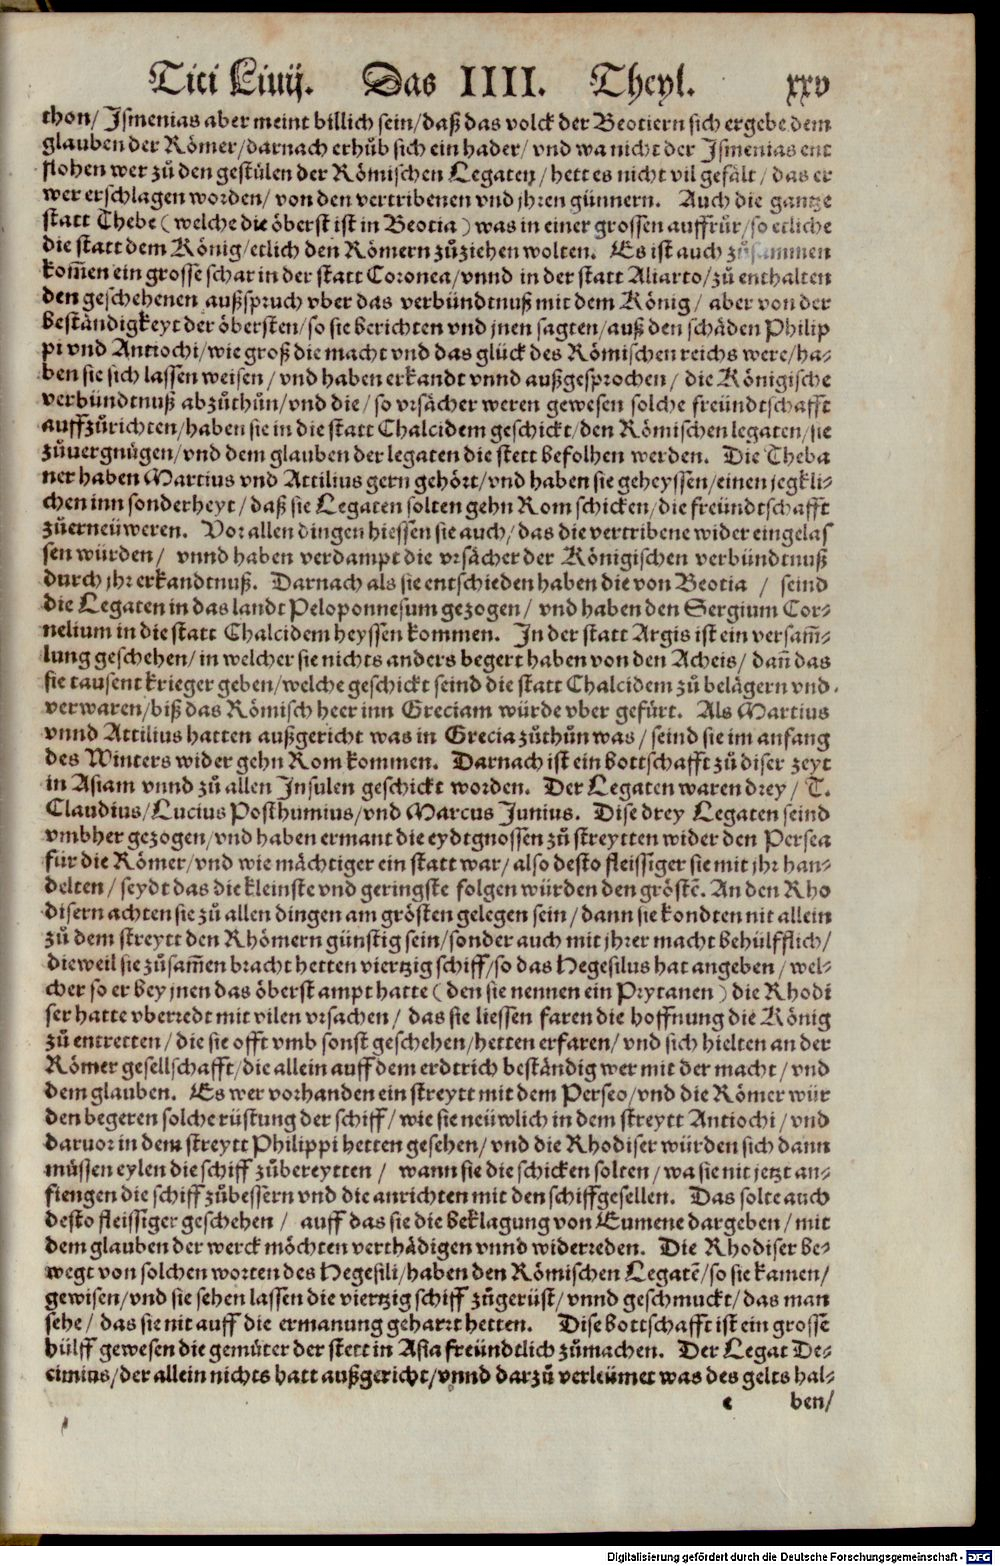 Titi Liuij. Das IIII. Theyl. xxv
thon/ Ismenias aber meint billich sein/daß das volck der Beotiern sich ergebe dem
glauben der Römer/darnach erhůb sich ein hader/ vnd wa nicht der Ismenias ent
flohen wer zů den gestülen der Römischen Legaten/ hett es nicht vil gefält/ das er
wer erschlagen worden/ von den vertribenen vnd jhren günnern. Auch die gantze
statt Thebe (welche die öberst ist in Beotia) was in einer grossen auffrůr/so etliche
die statt dem König/etlich den Römern zůziehen wolten. Es ist auch zůsammen
kom̃en ein grosse schar in der statt Coronea/vnnd in der statt Aliarto/zů enthalten
den geschehenen außspruch vber das verbündtnuß mit dem König/ aber von der
beständigkeyt der öbersten/so sie berichten vnd jnen sagten/auß den schäden Philip
pi vnd Antiochi/wie groß die macht vnd das glück des Römischen reichs were/ha-
ben sie sich lassen weisen/ vnd haben erkandt vnnd außgesprochen/ die Königische
verbündtnuß abzůthůn/vnd die/ so vrsächer weren gewesen solche freündtschafft
auffzůrichten/haben sie in die statt Chalcidem geschickt/den Römischen legaten/sie
zůuergnügen/vnd dem glauben der legaten die stett befolhen werden. Die Theba
ner haben Martius vnd Attilius gern gehört/vnd haben sie geheyssen/einen jegkli-
chen inn sonderheyt/ daß sie Legaten solten gehn Rom schicken/die freündtschafft
zůerneüweren. Vor allen dingen hiessen sie auch/das die vertribene wider eingelas
sen würden/ vnnd haben verdampt die vrsächer der Königischen verbündtnuß
durch jhr erkandtnuß. Darnach als sie entschieden haben die von Beotia / seind
die Legaten in das landt Peloponnesum gezogen/ vnd haben den Sergium Cor-
nelium in die statt Chalcidem heyssen kommen. In der statt Argis ist ein versam̃-
lung geschehen/in welcher sie nichts anders begert haben von den Acheis/ dañ das
sie tausent krieger geben/welche geschickt seind die statt Chalcidem zů belägern vnd
verwaren/biß das Römisch heer inn Greciam würde vber gefürt. Als Martius
vnnd Attilius hatten außgericht was in Grecia zůthůn was/ seind sie im anfang
des Winters wider gehn Rom kommen. Darnach ist ein bottschafft zů diser zeyt
in Asiam vnnd zů allen Insulen geschickt worden. Der Legaten waren drey/ T.
Claudius/Lucius Posthumius/vnd Marcus Junius. Dise drey Legaten seind
vmbher gezogen/vnd haben ermant die eydtgnossen zů streytten wider den Persea
für die Römer/vnd wie mächtiger ein statt war/ also desto fleissiger sie mit jhr han-
delten/ seydt das die kleinste vnd geringste folgen würden den gröstẽ. An den Rho
disern achten sie zů allen dingen am grösten gelegen sein/ dann sie kondten nit allein
zů dem streytt den Rhömern günstig sein/sonder auch mit jhrer macht behülfflich/
dieweil sie zůsam̃en bracht hetten viertzig schiff/so das Hegesilus hat angeben/ wel-
cher so er bey jnen das öberst ampt hatte (den sie nennen ein Prytanen) die Rhodi
ser hatte vberredt mit vilen vrsachen/ das sie liessen faren die hoffnung die König
zů entretten/ die sie offt vmb sonst geschehen/hetten erfaren/ vnd sich hielten an der
Römer gesellschafft/die allein auff dem erdtrich beständig wer mit der macht/ vnd
dem glauben. Es wer vorhanden ein streytt mit dem Perseo/vnd die Römer wür
den begeren solche rüstung der schiff/ wie sie neüwlich in dem streytt Antiochi/ vnd
daruor in dem streytt Philippi hetten gesehen/ vnd die Rhodiser würden sich dann
müssen eylen die schiff zůbereytten/ wann sie die schicken solten/ wa sie nit jetzt an-
fiengen die schiff zůbessern vnd die anrichten mit den schiffgesellen. Das solte auch
desto fleissiger geschehen/ auff das sie die beklagung von Eumene dargeben/ mit
dem glauben der werck möchten verthädigen vnnd widerreden. Die Rhodiser be-
wegt von solchen worten des Hegesili/haben den Römischen Legatẽ/so sie kamen/
gewisen/vnd sie sehen lassen die viertzig schiff zůgerüst/vnnd geschmuckt/das man
sehe/ das sie nit auff die ermanung geharrt hetten. Dise bottschafft ist ein grosse
hülff gewesen die gemüter der stett in Asia freündtlich zůmachen. Der Legat De-
cimius/der allein nichts hatt außgericht/vnnd darzů verleümet was des gelts hal-
c ben/
Digitalisierung gefördert durch die Deutsche Forschungsgemeinschaft - DFG